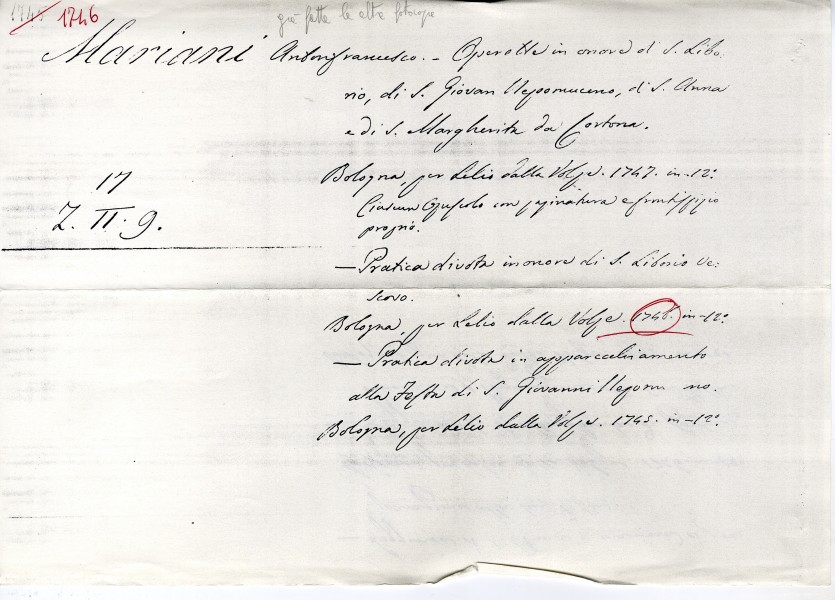 1745 1746
già fatte le altre fotocopie
Mariani Antonfrancesco. – Operette in onore di S. Libo-
rio, di S. Giovan Nepomuceno, di S. Anna
e di S. Margherita da Cortona.
17
Z. II. 9.
Bologna, per Lelio dalla Volpe. 1747. in-12º
Ciascun Opuscolo con paginatura e frontispizio
proprio.
— Pratica divota in onore di S. Liborio Ve-
scovo.
Bologna, per Lelio dalla Volpe. 1746. in-12º
— Pratica divota in apparecchiamento
alla Festa di S. Giovanni Nepomu no.
Bologna, per Lelio dalla Volpe. 1745. in-12º